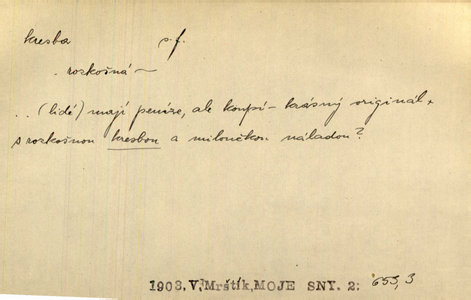 kresba s.f.
. rozkošná ~
.. (lidé) mají peníze, ale koupí – krásný originál
s rozkošnou kresbou a miloučkou náladou?
1903. V. Mrštík, MOJE SNY. 2: 655, 3